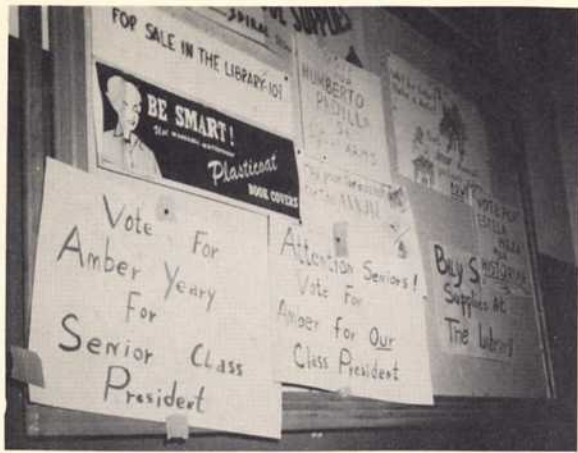 SUPPLIES
SPIRAL
FOR SALE IN THE LIBRARY-107
BE SMART!
Plasticoat
BOOK COVERS
Vote
For
Amber Yeary
For
Senior Class
President
HUMBERTO
PADILLA
ARMS
ANNUAL
Attention Seniors!
Vote For
Amber For Our
Class President
VOTE FOR
HISTORIAN
Buy S.
Supplies At
The Library